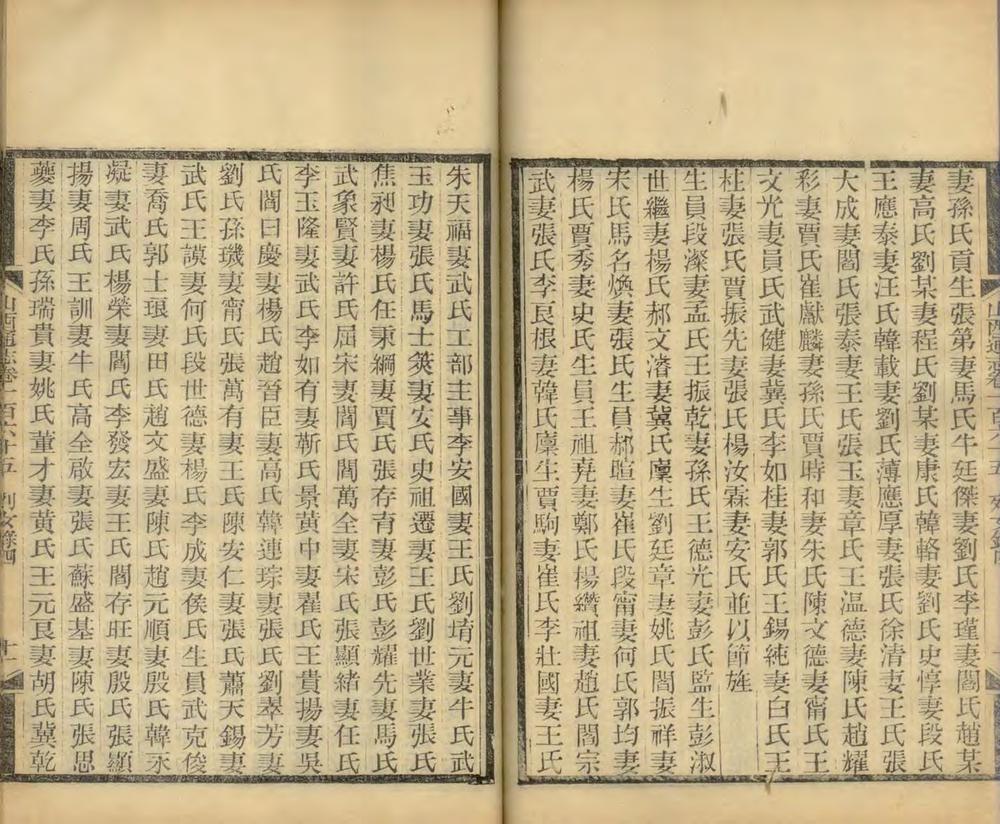 妻孫氏貢生張第妻馬氏牛廷傑妻劉氏李瑾妻閻氏趙某
妻高氏劉某妻程氏劉某妻康氏韓輅妻劉氏史惇妻段氏
王應泰妻汪氏韓載妻劉氏薄應厚妻張氏徐清妻王氏張
大成妻閻氏張泰妻王氏張玉妻章氏王溫德妻陳氏趙耀
彩妻賈氏崔獻麟妻孫氏賈時和妻朱氏陳文德妻甯氏王
文光妻員氏武健妻冀氏李如桂妻郭氏王錫純妻白氏王
柱妻張氏賈振先妻張氏楊汝霖妻安氏並以節旌
生員段濚妻孟氏王振乾妻孫氏王德光妻彭氏監生彭淑
世繼妻楊氏郝文濬妻冀氏廩生劉廷章妻姚氏閻振祥妻
宋氏馬名煥妻張氏生員郝暄妻崔氏段甯妻何氏郭均妻
楊氏賈秀妻史氏生員王祖堯妻鄭氏楊纘祖妻趙氏閻宗
武妻張氏李艮根妻韓氏廩生賈駒妻崔氏李壯國妻王氏
朱天福妻武氏工部主事李安國妻王氏劉堉元妻牛氏武
玉功妻張氏馬士筴妻安氏史祖遷妻王氏劉世業妻張氏
焦昶妻楊氏任秉綱妻賈氏張存育妻彭氏彭耀先妻馬氏
武象賢妻許氏屈宋妻閻氏閻萬全妻宋氏張顯緒妻任氏
李玉隆妻武氏李如有妻靳氏景黃中妻翟氏王貴揚妻吳
氏閻日慶妻楊氏趙晉臣妻高氏韓連琮妻張氏劉翠芳妻
劉氏孫璣妻甯氏張萬有妻王氏陳安仁妻張氏蕭天錫妻
武氏王謨妻何氏段世德妻楊氏李成妻侯氏生員武克俊
妻喬氏郭士琅妻田氏趙文盛妻陳氏趙元順妻殷氏韓永
凝妻武氏楊榮妻閻氏李發宏妻王氏閻存旺妻殷氏張顯
揚妻周氏王訓妻牛氏高全啟妻張氏蘇盛基妻陳氏張思
夔妻李氏孫瑞貴妻姚氏董才妻黃氏王元艮妻胡氏冀乾
山西通志卷一百六十五 列女錄四 十一